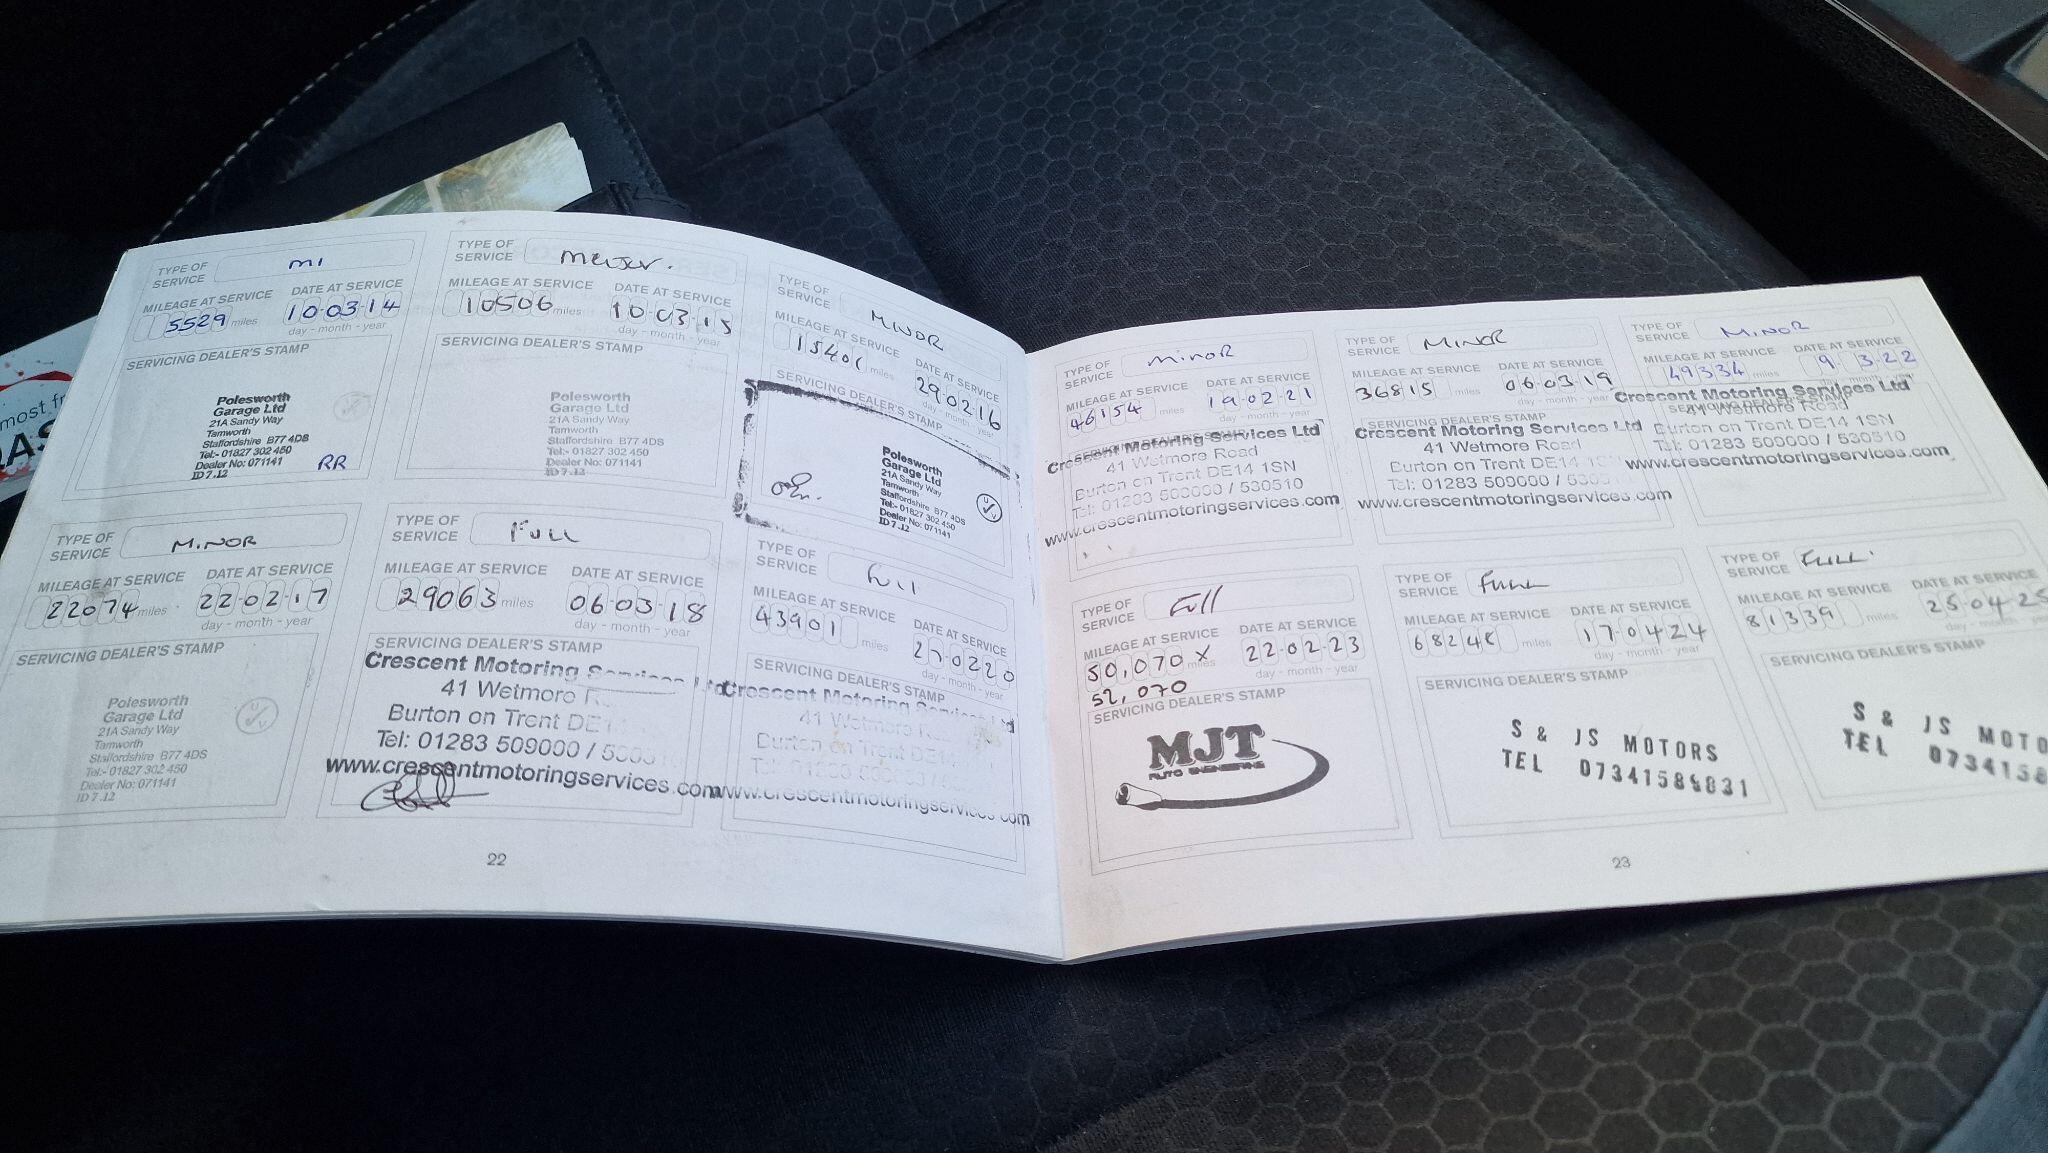 TYPE OF SERVICE MI
MILEAGE AT SERVICE DATE AT SERVICE
5529 miles 10-03-14
day - month - year
SERVICING DEALER'S STAMP
Polesworth
Garage Ltd
21A Sandy Way
Tamworth
Staffordshire B77 4DS
Tel:- 01827 302 450
Dealer No: 071141
ID 7.12 RR
TYPE OF SERVICE
MILEAGE AT SERVICE DATE AT SERVICE
10506 miles 10-03-15
day - month - year
SERVICING DEALER'S STAMP
Polesworth
Garage Ltd
21A Sandy Way
Tamworth
Staffordshire B77 4DS
Tel:- 01827 302 450
Dealer No: 071141
ID 7.12
TYPE OF SERVICE MINOR
MILEAGE AT SERVICE DATE AT SERVICE
15401 miles 29-02-16
day - month - year
SERVICING DEALER'S STAMP
Polesworth
Garage Ltd
21A Sandy Way
Tamworth
Staffordshire B77 4DS
Tel:- 01827 302 450
Dealer No: 071141
ID 7.12
TYPE OF SERVICE MINOR
MILEAGE AT SERVICE DATE AT SERVICE
22074 miles 22-02-17
day - month - year
SERVICING DEALER'S STAMP
Polesworth
Garage Ltd
21A Sandy Way
Tamworth
Staffordshire B77 4DS
Tel:- 01827 302 450
Dealer No: 071141
ID 7.12
TYPE OF SERVICE FULL
MILEAGE AT SERVICE DATE AT SERVICE
29063 miles 06-03-18
day - month - year
SERVICING DEALER'S STAMP
Crescent Motoring Services Ltd
41 Wetmore
Burton on Trent DE14
Tel: 01283 509000 /
www.crescentmotoringservices.com
TYPE OF SERVICE Full
MILEAGE AT SERVICE DATE AT SERVICE
43901 miles 27-02-20
day - month - year
SERVICING DEALER'S STAMP
Crescent Motoring Services Ltd
41 Wetmore
Burton on Trent DE14
www.crescentmotoringservices.com
22
TYPE OF SERVICE MINOR
MILEAGE AT SERVICE DATE AT SERVICE
46154 miles 19-02-21
day - month - year
Crescent Motoring Services Ltd
41 Wetmore Road
Burton on Trent DE14 1SN
Tel: 01283 509000 / 530510
www.crescentmotoringservices.com
TYPE OF SERVICE MINOR
MILEAGE AT SERVICE DATE AT SERVICE
36815 miles 06-03-19
day - month - year
SERVICING DEALER'S STAMP
Crescent Motoring Services Ltd
41 Wetmore Road
Burton on Trent DE14
Tel: 01283 509000 /
www.crescentmotoringservices.com
TYPE OF SERVICE MINOR
MILEAGE AT SERVICE DATE AT SERVICE
49334 9 3 22
Crescent Motoring Services Ltd
41 Wetmore Road
Burton on Trent DE14 1SN
Tel: 01283 500000 / 530510
www.crescentmotoringservices.com
TYPE OF SERVICE Full
MILEAGE AT SERVICE DATE AT SERVICE
50,070 X miles 22-02-23
52,070 day - month - year
SERVICING DEALER'S STAMP
MJT
AUTO ENGINEERING
TYPE OF SERVICE FULL
MILEAGE AT SERVICE DATE AT SERVICE
68248 miles 17-04-24
day - month - year
SERVICING DEALER'S STAMP
S & JS MOTORS
TEL 07341589831
TYPE OF SERVICE FULL
MILEAGE AT SERVICE DATE AT SERVICE
81339 miles 25-04-25
day - month - year
SERVICING DEALER'S STAMP
S & JS MOTO
TEL 0734158
23